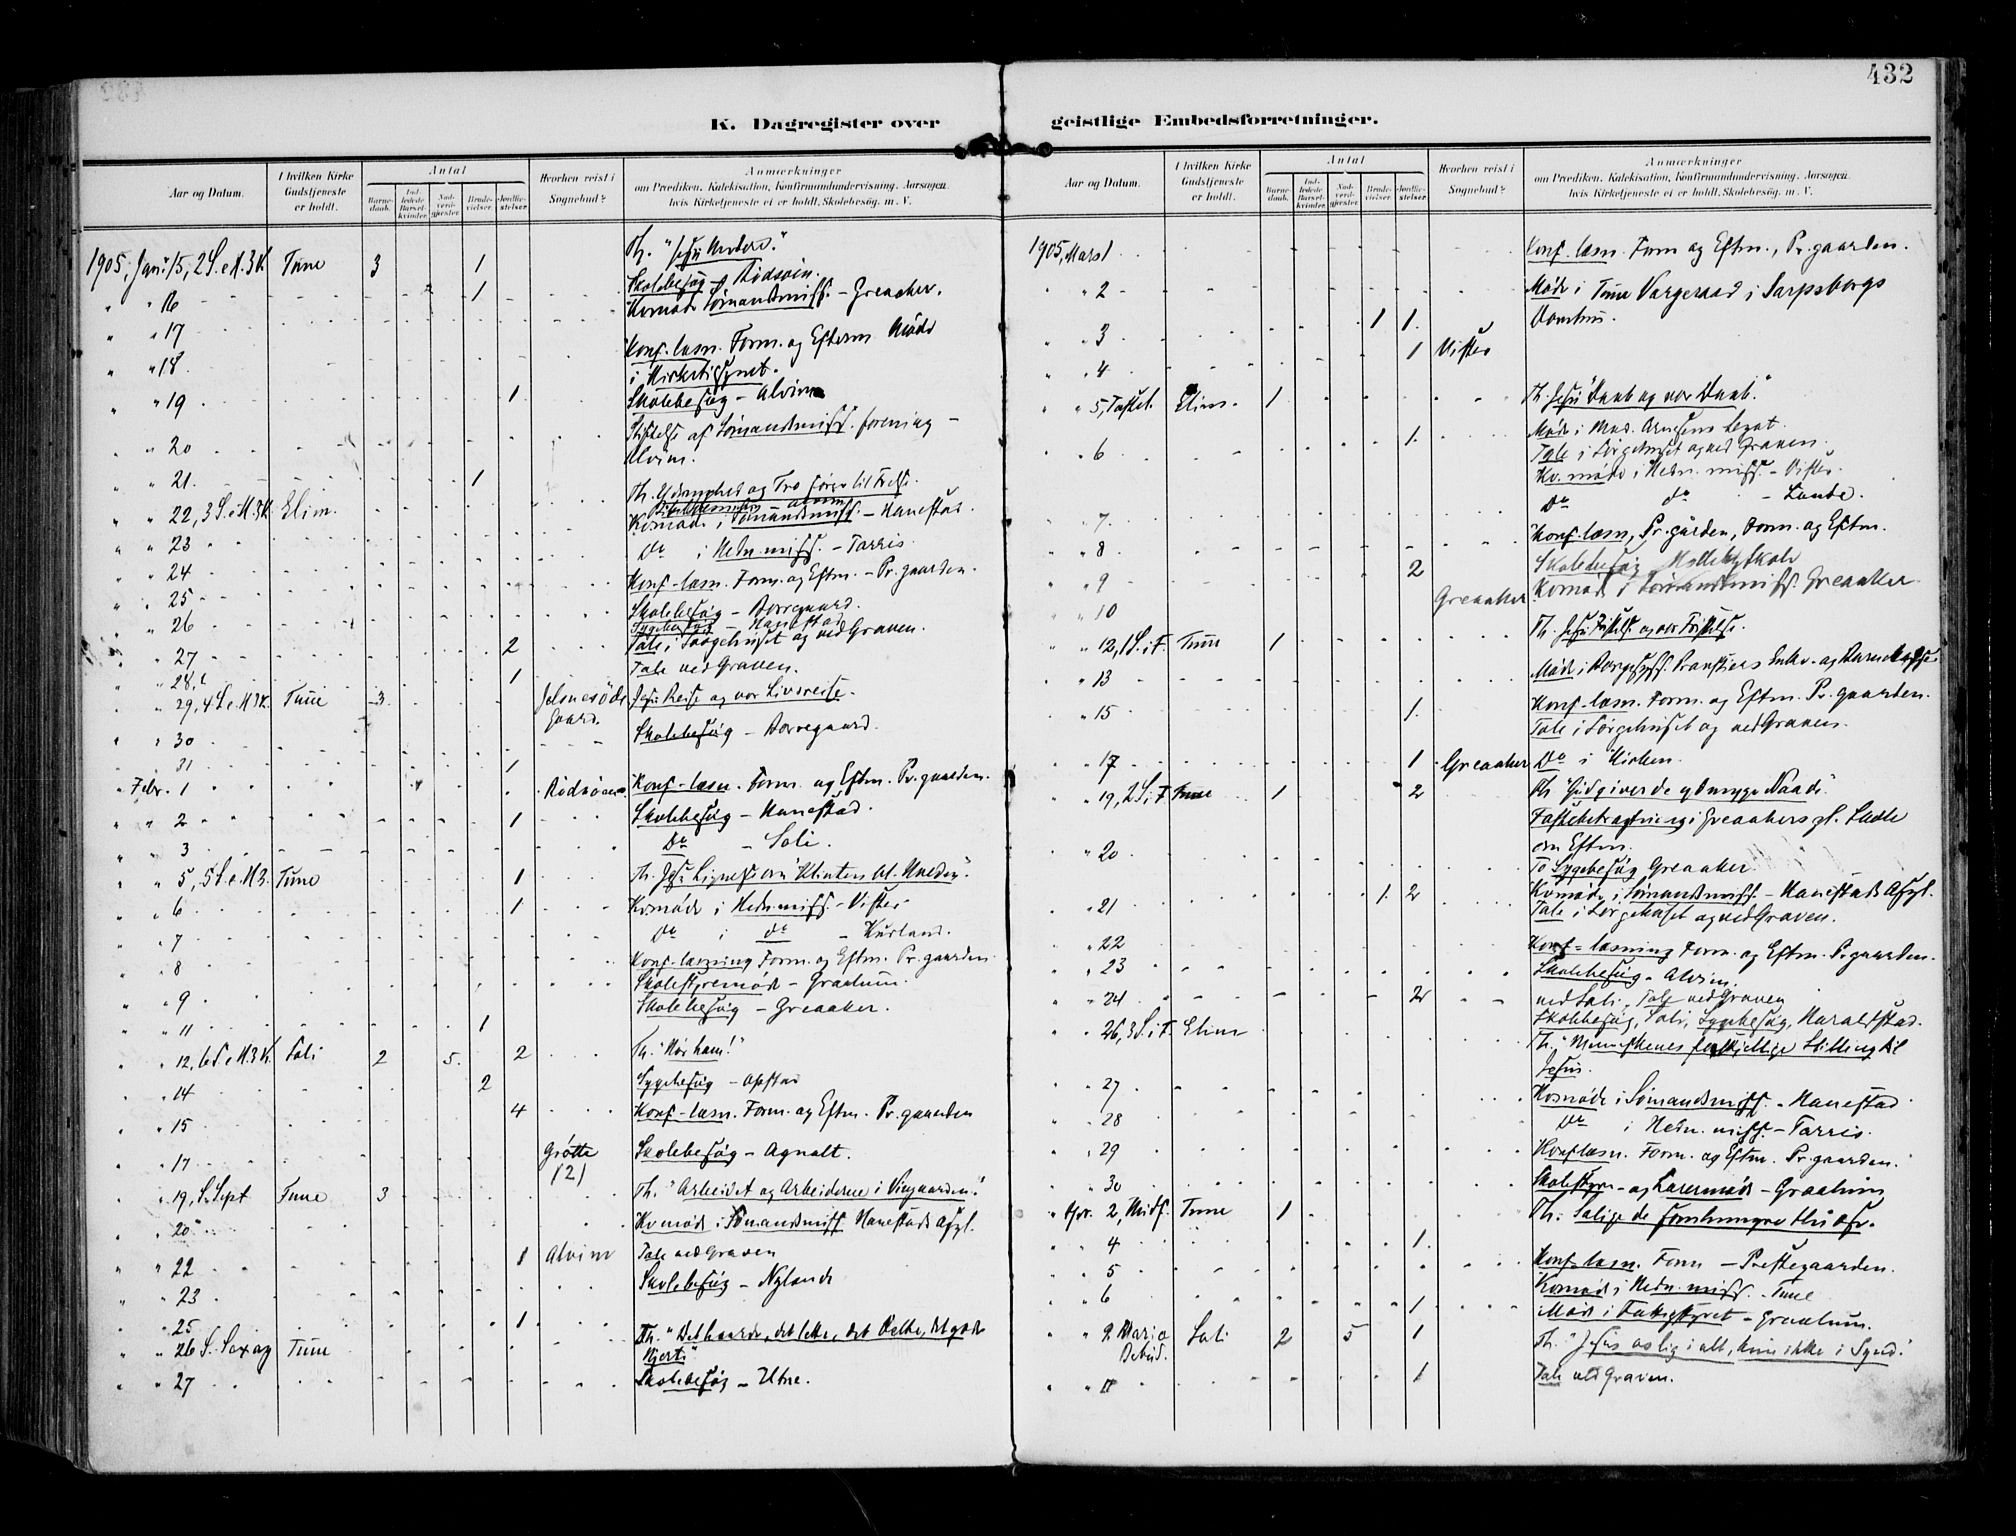 432
K. Dagregister over geistlige Embedsforretninger.
Aar og Datum.
I hvilken Kirke Gudstjeneste er holdt.
Antal
Barnedaab.
Indledede Barselkvinder.
Nadverdgjester
Brudevielser
Jordfæstelser
Hvorhen reist i Sognebud?
Anmærkninger
om Prædiken, Katekisation, Konfirmandundervisning, Aarsagen,
hvis Kirketjeneste ei er holdt, Skolebesög m. V.
1905, Jan. 15, 2 S. e. H. 3 K. Tune 3 1 Th.
" " 16 1 Skolebesøg
Kvmøde Sømandsmiss. – Greaaker.
" " 17 Konf.-læsn. Form. og Efterm. Møde
" " 18
" " 19 1 Skolebesøg – Alvim
Stiftelse af Sømandsmiss. forening –
" " 20 Alvim.
" " 21 1
" " 22, 3 S. e. H. 3 K. Elim. Kvmøde i Sømandsmiss. – Hanestad.
" " 23 Do i Hedn. miss. – Tarris.
" " 24 Konf.-læsn. Form. og Eftm. – Pr.gaarden.
" " 25 Skolebesøg – Borregaard.
" " 26 Sygebesøg – Hanestad
" " 27 2 Tale i Sørgehuset og ved Graven.
" " 28 1 Tale ved Graven.
" " 29, 4 S. e. H. 3 K. Tune 3 Jesu Reise og vor Livsreise.
" " 30 Skolebesøg – Borregaard.
" 31 1
" Febr. 1 Konf.-læsn. Form. og Eftm. Pr.gaarden.
" " 2 1 Skolebesøg – Hanestad.
" " 3 Do – Soli.
" " 5, 5 S. e. H. 3. Tune 1 Th. Jesu Lignelse om Klinten bl. Hveden."
" " 6 1 Kvmøde i Hedn. miss. – Vister
" " 7 Do i do – Kurland.
" " 8 Konf.-læsning Form. og Eftm. Pr.gaarden.
Skolestyremøde – Graalum.
" " 9 Skolebesøg – Greaaker.
" " 11 1
" " 12, 6 S. e. H. 3 K. Soli 2 5 2 Th. "Hør ham!"
" " 14 2 Sygebesøg – Opstad
" " 15 4 Konf.-læsn. Form. og Eftm. Pr.gaarden
" " 17 Grøtte (2) Skolebesøg – Agnalt.
" " 19, S. Sept Tune 3 Th. "Arbeidet og Arbeiderne i Vingaarden."
" " 20 Kvmøde i Sømandsmiss. Hanestads Asyl.
" " 22 1 Alvim Tale ved Graven
" " 23 Skolebesøg – Nylande
" " 25 1
" " 26 S. Sexag Tune Th. "Det haarde, det lette, det delte, det gode
Hjerte."
" " 27 Skolebesøg – Utne.
Aar og Datum.
I hvilken Kirke Gudstjeneste er holdt.
Antal
Barnedaab.
Indledede Barselkvinder.
Nadverdgjester
Brudevielser
Jordfæstelser
Hvorhen reist i Sognebud?
Anmærkninger
om Prædiken, Katekisation, Konfirmandundervisning, Aarsagen,
hvis Kirketjeneste ei er holdt, Skolebesög m. V.
1905, Mars 1 Konf.-læsn. Form og Eftm., Pr.gaarden.
" " 2 Møde i Tune Vergeraad i Sarpsborgs
" " 3 1 1
" " 4 1 Vister
" " 5, Fastel. Elim. 1 Th. Jesu Daab og vor Daab."
" " 6 1 Møde i Legat.
Tale i Sørgehuset og ved Graven.
Kv.møde i Hedn. miss. – Vister.
" " 7 Do do – Lande.
" " 8 Konf.læsn, Pr.gården, Form. og Eftm.
" " 9 2 Skolebesøg
" " 10 Greaaker Kvmøde i Sømandsmiss. Greaaker
" " 12, 1 S. i F. Tune 1 Th. Jesu Fristelse og vor Fristelse.
" " 13 Møde i
" " 15 1 Konf.-læsn. Form. og Eftm. Pr.gaarden.
Tale i Sørgehuset og ved Graven.
" " 17 1 Greaaker Do i Kirken.
" " 19, 2 S. i F. Tune 1 2 Th. "Gud giver de ydmyge Naade"
Fastebetragtning i Greaakers gl. Skole
" " 20 om Eftm.
To Sygebesøg Greaaker
" " 21 1 2 Kvmøde i Sømandsmiss. – Hanestads Asyl.
Tale i Sørgehuset og ved Graven.
" " 22 Konf.-læsning Form. og Eftm. Pr.gaarden.
" " 23 Skolebesøg – Alvim.
" " 24 2 ved Soli, Tale ved Graven
" " 26, 3 S. i F. Elim Skolebesøg, Soli, Sygebesøg, Haraldstad.
Th. "Menneskenes forskjellige Stilling til
Jesus.
" " 27 Kvmøde i Sømandsmiss. – Hanestad
" " 28 Do i Hedn. miss. – Tarris.
" " 29 Konf.læsn. Form. og Eftm. Pr.gaarden.
" " 30 Skolestyre- og Lærermøde – Graalum
" Apr. 2, Midf. Tune 1 Th. Salige de som hungre
" " 4 1
" " 5 Konf.-læsn. Form – Prestegaarden.
" " 6 1 Kvmøde i Hedn. miss. – Tune
Møde i Fattigstyret – Graalum.
" " 9. Mariæ Bebud. Soli 2 5 1 Th. "Jesus os lig i alt, kun ikke i Synd."
" " 11 1 Tale ved Graven.